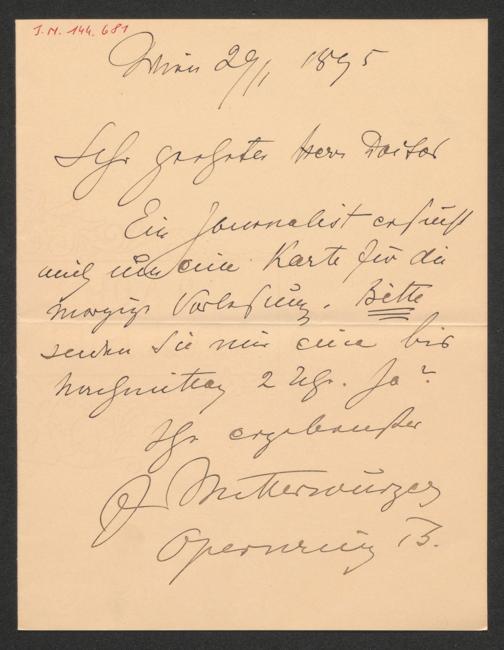 J.N. 144.681
Wien 29/1 1895
Sehr geehrter Herr Doctor
Ein Journalist ersucht
mich um eine Karte für die
morgige Vorlesung. Bitte
senden Sie mir eine bis
Nachmittag 2 Uhr. Ja?
Ihr ergebenster
F Mitterwurzer
Opernring